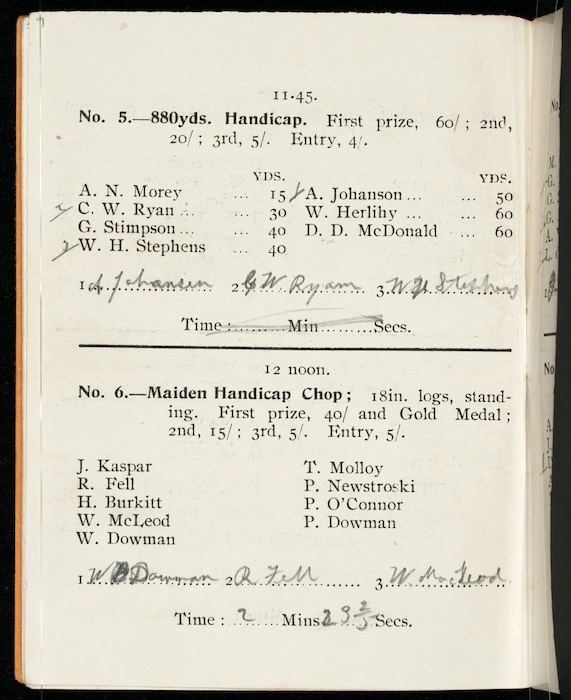 11.45.
No. 5.—880yds. Handicap. First prize, 60/; 2nd,
20/; 3rd, 5/. Entry, 4/.
YDS. YDS.
A. N. Morey ... 15 A. Johanson ... ... 50
C. W. Ryan ... ... 30 W. Herlihy ... ... 60
G. Stimpson ... ... 40 D. D. McDonald ... 60
W. H. Stephens ... 40
1 A Johansen 2 C W Ryan 3. W H Stephens
Time : ......... Min ......... Secs.
12 noon.
No. 6.—Maiden Handicap Chop; 18in. logs, stand-
ing. First prize, 40/ and Gold Medal;
2nd, 15/; 3rd, 5/. Entry, 5/.
J. Kaspar T. Molloy
R. Fell P. Newstroski
H. Burkitt P. O'Connor
W. McLeod P. Dowman
W. Dowman
1 W Dowman 2 R Fell 3. W MacLeod
Time : 2 Mins 23 2/5 Secs.